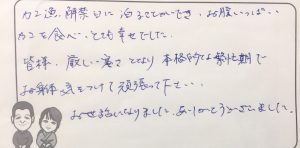 カニ漁、解禁日に泊まることができ、お腹いっぱい..
カニを食べ、とても幸せでした。
皆様、厳しい寒さとなり本格的な繁忙期で
お身体、気をつけて頑張って下さい...
お世話になりました。ありがとうございました。